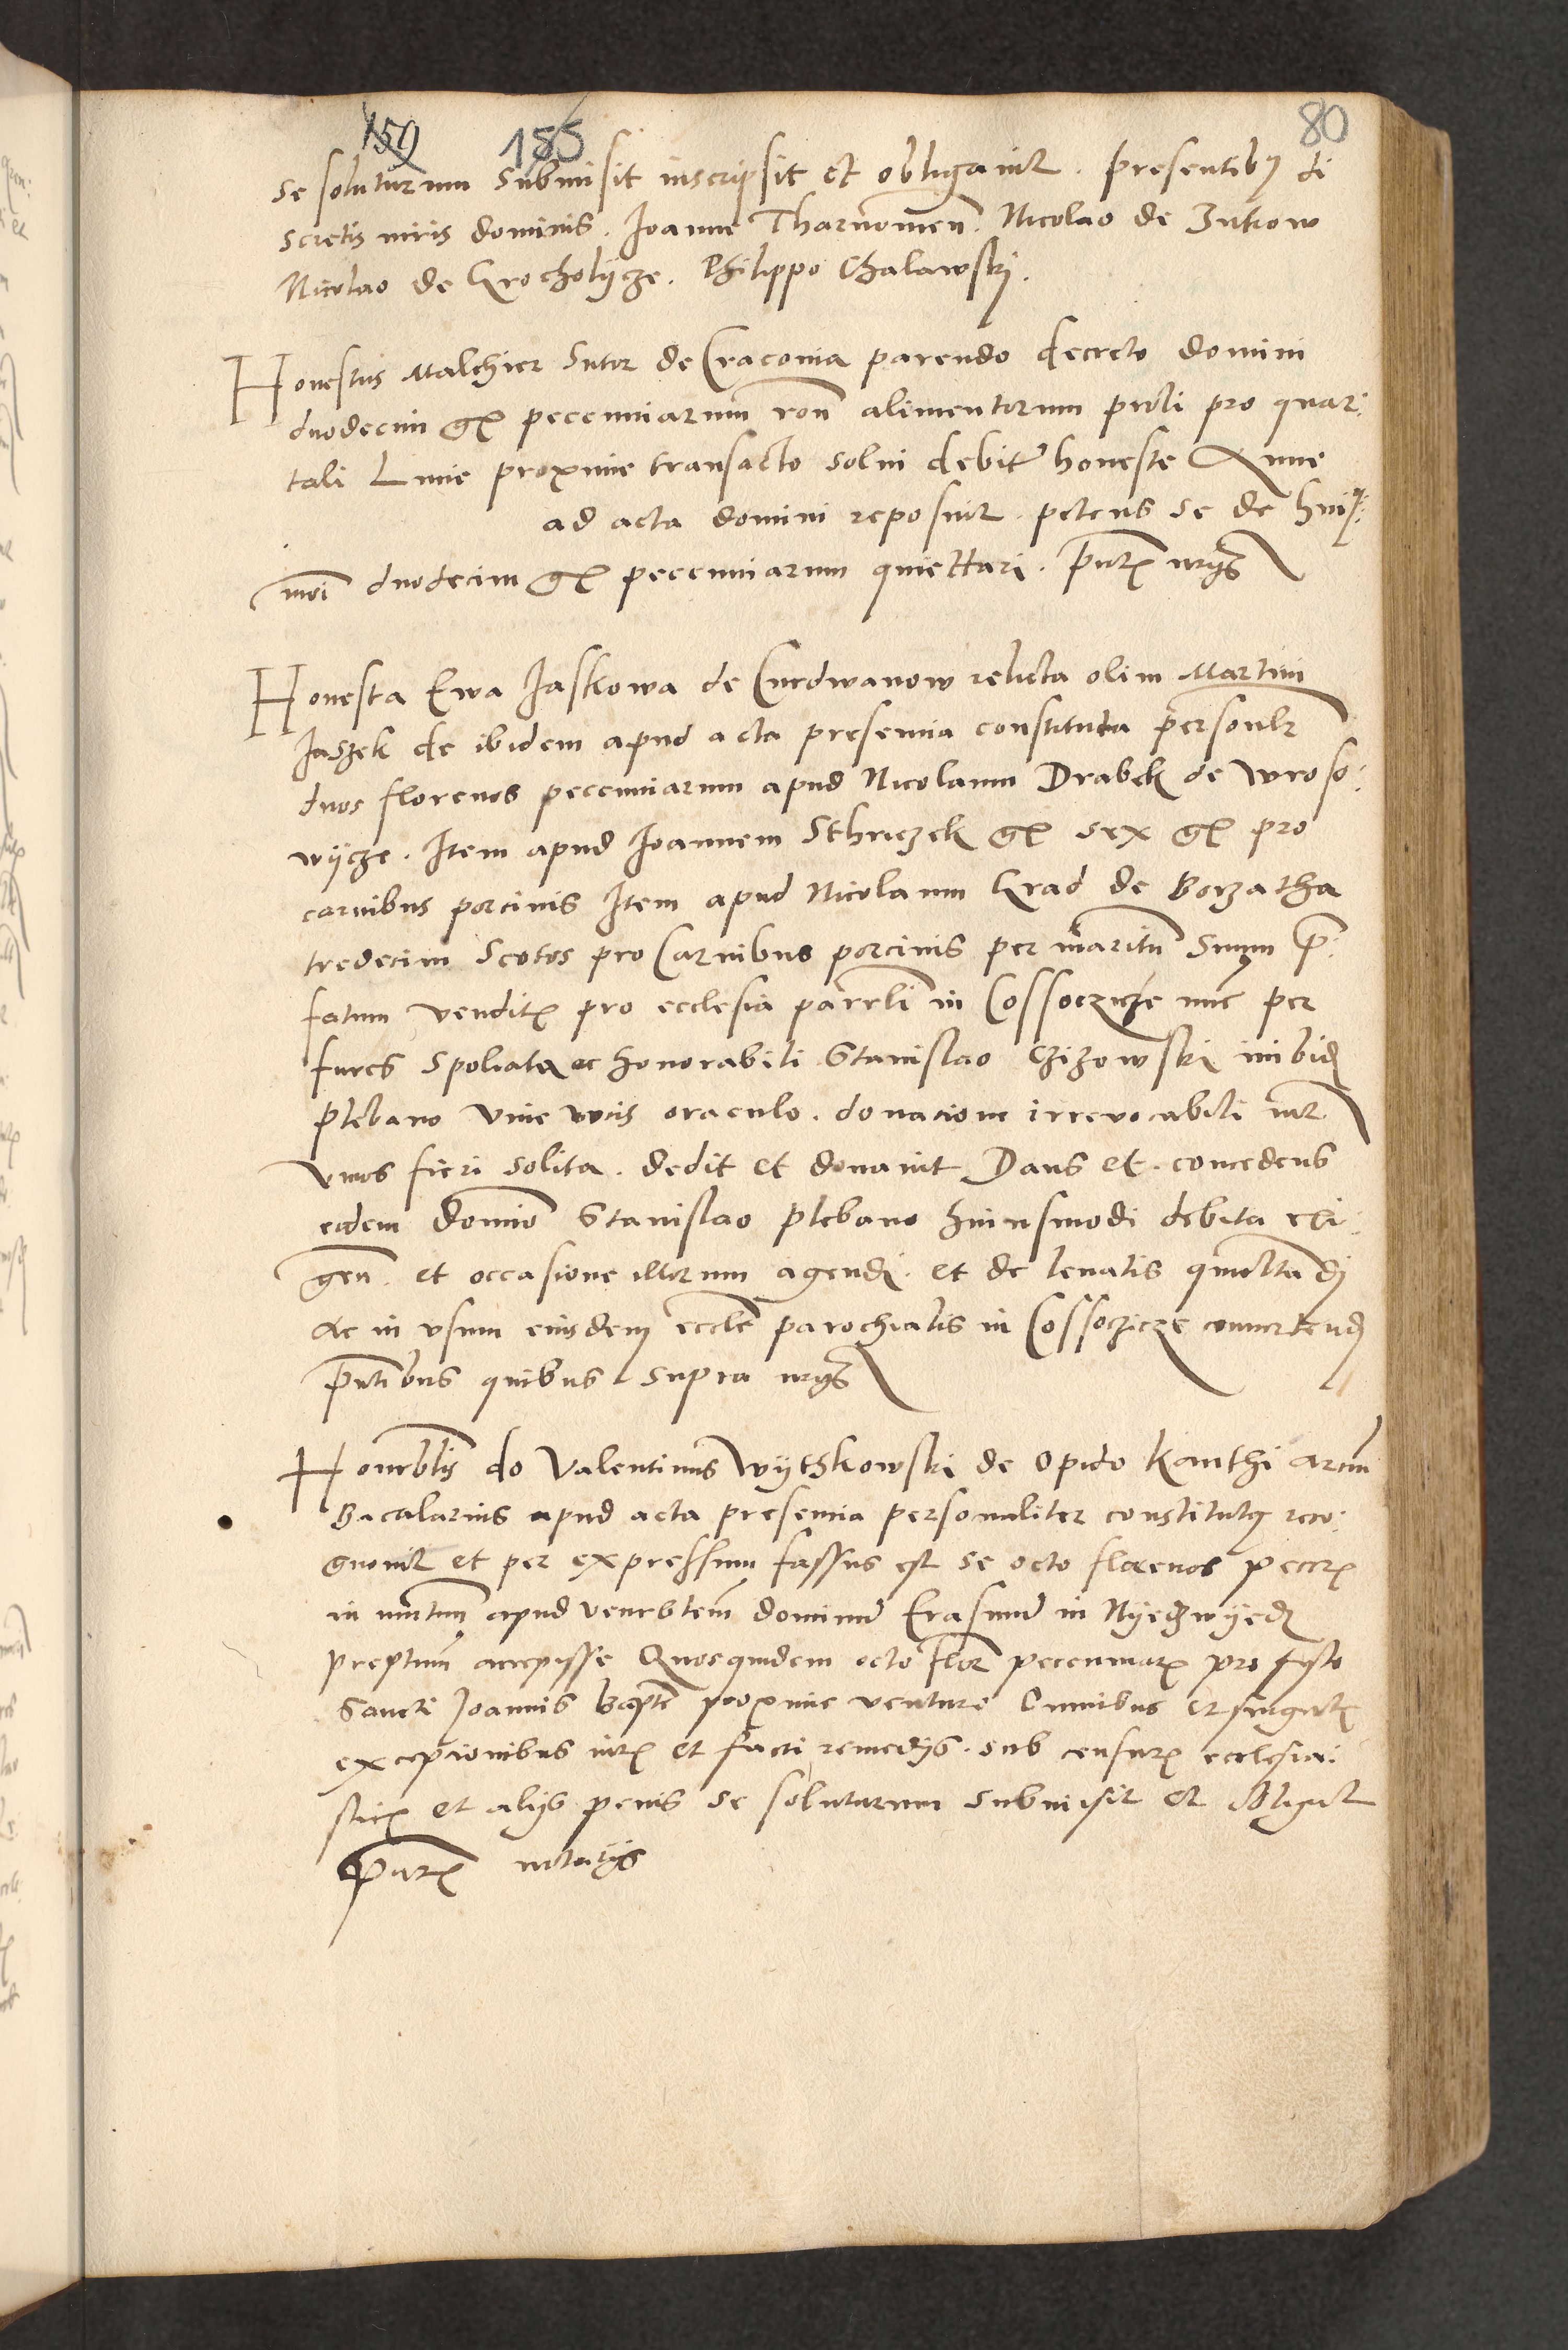 159 185 80
se soluturum submisit inscripsit et obligauit. presentibus di
scretis viris dominis. Joanne Tharnomen. Nicolao de Zukow
Nicolao de Krocholycze. Philippo Chalawskj.
Honestus Malchier Sutor de Cracouia parendo decreto domini
duodecim gr pecunniarum ron alimentorum proli pro quar:
tali Lucie proxime transacto solui debit honeste Anne
ad acta domini reposuit. petens se de hui:
moi duodecim gr pecunniarum quiettari. pntibus
Honesta Ewa Jaskowa de Curdwanow relicta olim Martini
Jaszek de ibidem apud acta presencia constituta personlr
duos florenos pecunniarum apud Nicolaum Drabek de Wroso:
wycze. Item apud Joannem Sthriczek gr sex gr pro
carnibus porcinis Item apud Nicolaum Grad de Borzatha
tredecim Scotos pro Carnibus porcinis per maritum Suum p:
fatum vendit pro ecclesia parrli in Cossoczicze nunc per
fures spoliata ac honorabili Stanislao Czizowski inibid
plebano viue vocis oraculo. donatione irreuocabili intr
viuos fieri solita. dedit et donauit Dans et concedens
eidem domino Stanislao plebano huiusmodi debita exi:
gen. et occasione illorum agendi. et de leuatis quittandi
ac in vsum eiusdem eccle parochialis in Cossoczicze conuertendi
pntibus quibus supra
Honrblis do Valentinus Wythkowski de opido Kanthi arcium
Bacalarius apud acta presencia personaliter constitutus reco:
gnouit et per expressum fassus est se octo florenos peccr
in mutuum apud venrblem dominum Erasmum in Nyedzwyedz
preptum accepisse Quosquidem octo flor pecunniar pro festo
Sancti Joannis Bapte proxime venturo Omnibus et singulis
excepcionibus iuris et facti remedys. sub censuris ecclesia:
sticis et alys penis se soluturum submisit et obligauit
pntibus